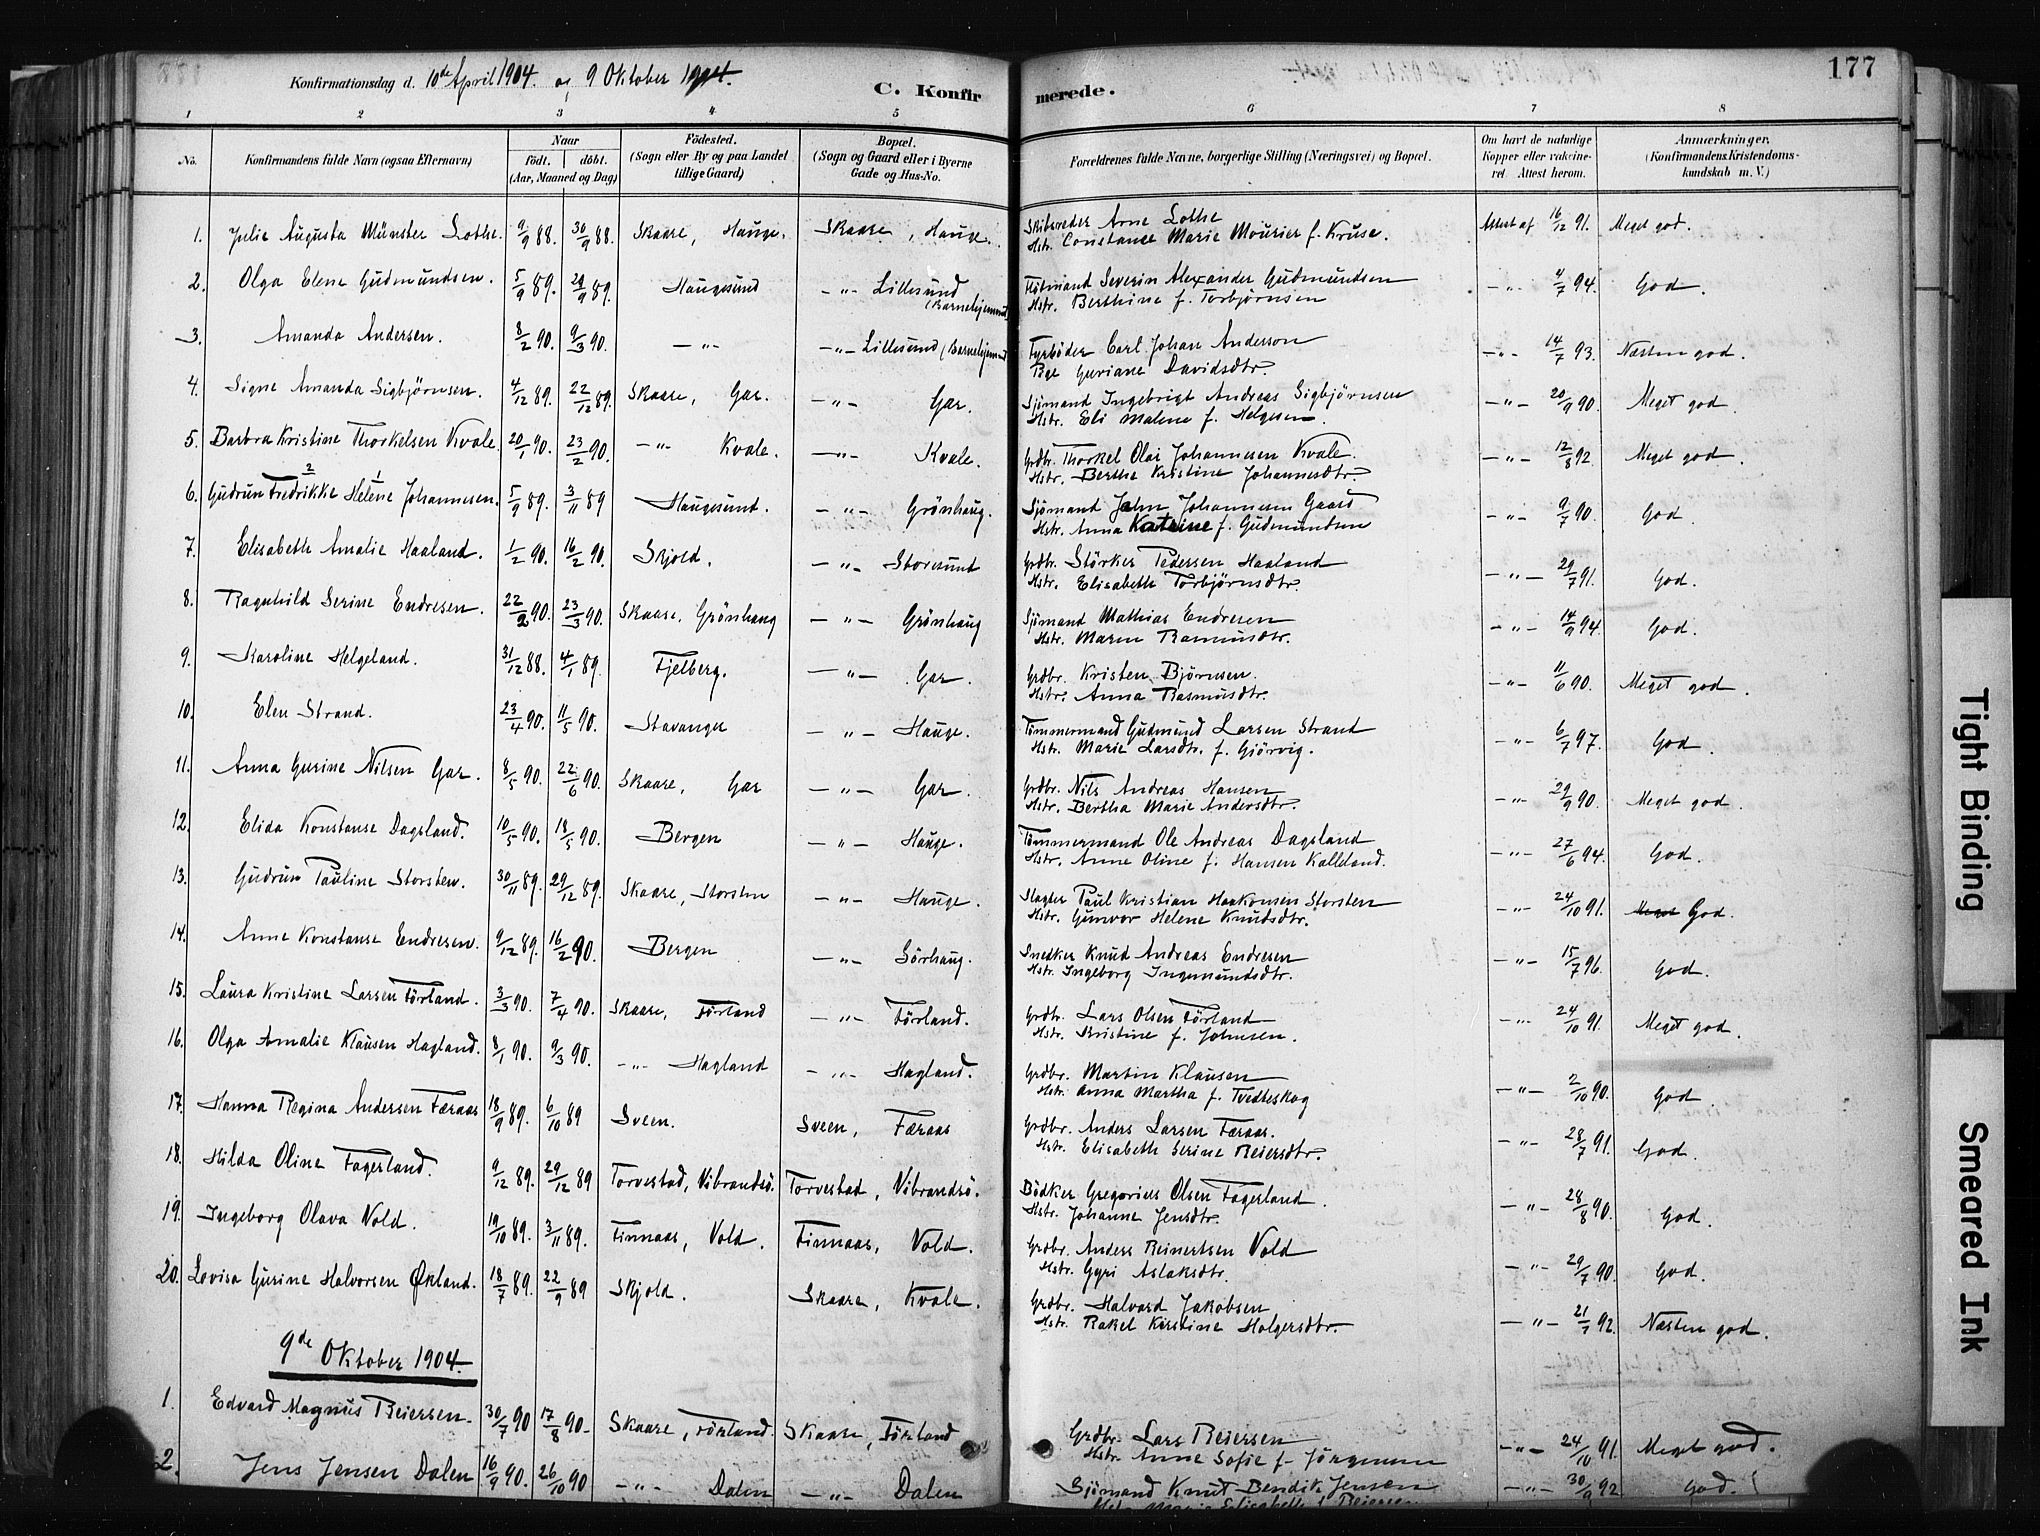 Konfirmationsdag d. 10de April 1904. og 9 Oktober 1904.
C. Konfirmerede.
177
1 2 3 4 5 6 7 8
No. Konfirmandens fulde Navn (ogsaa Efternavn) Naar født. døbt. (Aar, Maaned og Dag) Fødested. (Sogn eller By og paa Landet tillige Gaard) Bopæl. (Sogn og Gaard eller i Byerne Gade og Hus-No. Forældrenes fulde Navne, borgerlige Stilling (Næringsvei) og Bopæl. Om havt de naturlige Kopper eller vaccineret. Attest herom. Anmærkninger. (Konfirmandens Kristendomskundskab m. V.)
1. Julie Augusta Münster Lothe. 9/9 88. 30/9 88. Skaare, Hauge. Skaare, Hauge. Skibsreder Arne Lothe Attest af 16/12 91. Meget god.
Hstr. Constance Marie Mourier f. Kruse.
2. Olga Elene Gudmundsen. 5/9 89. 29/9 89. Haugesund -"- Lillesund (Barnehjemmet) Flötmand Severin Alexander Gudmundsen -"- 4/7 94. God.
Hstr. Berthine f. Torbjørnsen
3. Amanda Andersen. 8/2 90. 9/3 90. -"- -"- Lillesund (Barnehjemmet) Fyrbøder Carl Johan Anderson -"- 14/7 93. Næsten god.
Pige Guriane Davidsdtr.
4. Signe Amanda Sigbjørnsen. 4/12 89. 22/12 89. Skaare, Gar. -"- Gar. Sjömand Ingebrigt Andreas Sigbjørnsen -"- 20/9 90. Meget god.
Hstr. Eli Malene f. Helgesen.
5. Barbra Kristine Thorkelsen Kvale. 20/1 90. 23/2 90. -"- Kvale. -"- Kvale. Grdbr. Thorkel Olai Johannesen Kvale. -"- 12/8 92. Meget god.
Hstr. Berthe Kristine Johannesdtr.
6. Gudrun Fredrikke Helene Johannesen. 5/9 89. 3/11 89 Haugesund. -"- Grönhaug. Sjömand John Johannesen Gaard -"- 9/7 90. God.
Hstr. Anna Katrine f. Gudmundsen
7. Elisabeth Amalie Haaland. 1/2 90. 16/2 90. Skjold. -"- Storesund Grdbr. Störker Pedersen Haaland -"- 29/7 91. God.
Hstr. Elisabeth Torbjørnsdtr.
8. Ragnhild Serine Endresen. 22/2 90. 23/3 90. Skaare, Grönhaug -"- Grönhaug Sjömand Mathias Endresen -"- 14/9 94. God.
Hstr. Maren Rasmusdtr.
9. Karoline Helgeland. 31/12 88. 4/1 89. Fjelberg. -"- Gar. Grdbr. Kristen Bjørnsen. -"- 11/6 90. Meget god.
Hstr. Anna Rasmusdtr.
10. Elen Strand. 23/4 90. 11/5 90. Stavanger -"- Hauge. Tömmermand Gudmund Larsen Strand -"- 6/7 97. God.
Hstr. Marie Larsdtr. f. Gjörvig.
11. Anna Gurine Nilsen Gar. 8/5 90. 22/6 90. Skaare, Gar -"- Gar. Grdbr. Nils Andreas Hansen -"- 29/9 90. Meget god.
Hstr. Bertha Marie Andersdtr.
12. Elida Konstanse Dagsland. 10/5 90. 18/5 90. Bergen -"- Hauge. Tömmermand Ole Andreas Dagsland -"- 27/6 94. God.
Hstr. Anne Oline f. Hansen Kalleland.
13. Gudrun Pauline Storsten. 30/11 89. 29/12 89. Skaare, Storsten -"- Hauge. Slagter Paul Kristian Haakonsen Storsten -"- 24/10 91. Meget God.
Hstr. Gunvor Helene Knudsdtr.
14. Anne Konstanse Endresen. 9/12 89. 16/2 90. Bergen -"- Sörhaug. Snedker Knud Andreas Endresen -"- 15/7 96. God.
Hstr. Ingeborg Ingemundsdtr.
15. Laura Kristine Larsen Førland. 3/3 90. 7/4 90. Skaare, Førland -"- Førland. Grdbr. Lars Olsen Førland -"- 24/10 91. Meget god.
Hstr. Kristine f. Johnsen.
16. Olga Amalie Klausen Hagland. 8/1 90. 9/3 90. -"- Hagland -"- Hagland. Grdbr. Martin Klausen -"- 2/10 90. God.
Hstr. Anna Martha f. Tvedteskog
17. Hanna Regina Andersen Færaas 18/9 89. 6/10 89 Sveen. Sveen, Færaas Grdbr. Anders Larsen Færaas. -"- 28/7 91. God.
Hstr. Elisabeth Serine Reiersdtr.
18. Hilda Oline Fagerland. 9/12 89. 29/12 89 Torvestad, Vibrandsö. Torvestad, Vibrandsö. Bödker Gregorius Olsen Fagerland. -"- 28/8 90. God.
Hstr. Johanne Jensdtr.
19. Ingeborg Olava Vold. 19/10 89. 3/11 89. Finnaas, Vold. Finnaas, Vold. Grdbr. Anders Reinertsen Vold -"- 29/7 90. God.
Hstr. Gyri Aslaksdtr.
20. Lovisa Gurine Halvorsen Økland. 18/7 89. 22/9 89 Skjold. Skaare, Kvale. Grdbr. Halvard Jakobsen -"- 21/7 92. Næsten god.
Hstr. Rakel Kirstine Holgersdtr.
9de Oktober 1904.
1. Edvard Magnus Reiersen. 30/7 90 17/8 90. Skaare, Førland. Skaare, Førland Grdbr. Lars Reiersen -"- 24/10 91. Meget god.
Hstr. Anne Sofie f. Jörgensen
2. Jens Jensen Dalen 16/9 90. 26/10 90 -"- Dalen -"- Dalen Sjömand Knut Bendik Jensen -"- 30/9 92 God.
Hstr. Marie Elisabeth f. Reiersen
Tight Binding
Smeared Ink